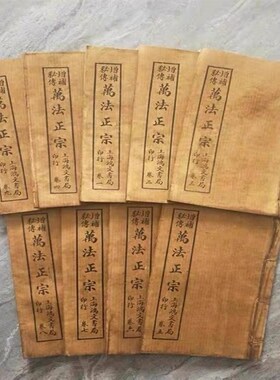 增補秘傳
萬法正宗
上海鴻文書局
印行
增補秘傳
萬法正宗
上海鴻文書局
印行
增補秘傳
萬法正宗
上海鴻文書局
印行
增補秘傳
萬法正宗
上海鴻文書局
印行
增補秘傳
萬法正宗
上海鴻文書局
印行
增補秘傳
萬法正宗
上海鴻文書局
印行 卷五
增補秘傳
萬法正宗
上海鴻文書局
印行 卷六
增補秘傳
萬法正宗
上海鴻文書局
印行 卷七
增補秘傳
萬法正宗
上海鴻文書局
印行 卷八